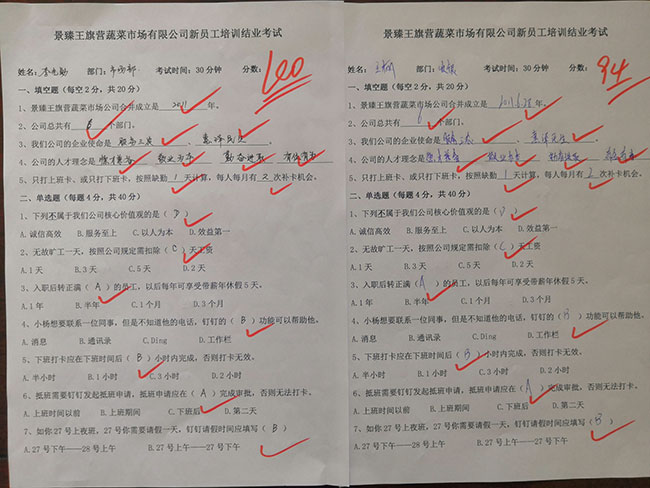 景臻王旗营蔬菜市场有限公司新员工培训结业考试
姓名: 部门:市场部 考试时间:30分钟 分数:100
一、填空题(每空2分,共20分)
1、景臻王旗营蔬菜市场公司合并成立是 2011 年。
2、公司总共有 6 个部门。
3、我们公司的企业使命是 服务三农 、 惠泽民生
4、公司的人才理念是
5、只打上班卡、或只打下班卡,按照缺勤 1 天计算,每人每月有 2 次补卡机会。
二、单选题(每题4分,共40分)
1、下列不属于我们公司核心价值观的是( D )
A.诚信高效 B.服务至上 C.以人为本 D.效益第一
2、无故旷工一天,按照公司规定需扣除( C )天工资
A.1天 B.3天 C.5天 D.2天
3、入职后转正满( A )的员工,以后每年可享受带薪年休假5天。
A.1年 B.半年 C.1个月 D.3个月
4、小杨想要联系一位同事,但是不知道他的电话,钉钉的( B )功能可以帮助他。
A.消息 B.通讯录 C.Ding D.工作栏
5、下班打卡应在下班时间后( B )小时内完成,否则打卡无效。
A.半小时 B.1小时 C.3小时 D.2小时
6、抵班需要钉钉发起抵班申请,抵班申请应在( A )完成审批,否则无法打卡。
A.上班时间以前 B.上班期间 C.下班后 D.第二天
7、如你27号上夜班,27号你需要请假一天,钉钉请假时间应填写( B )
A.27号下午——28号上午 B.27号上午——27号下午
景臻王旗营蔬菜市场有限公司新员工培训结业考试
姓名: 部门: 考试时间:30分钟 分数:94
一、填空题(每空2分,共20分)
1、景臻王旗营蔬菜市场公司合并成立是 2011.6.28 年。
2、公司总共有 6 个部门。
3、我们公司的企业使命是 服务三农 、
4、公司的人才理念是
5、只打上班卡、或只打下班卡,按照缺勤 1 天计算,每人每月有 2 次补卡机会。
二、单选题(每题4分,共40分)
1、下列不属于我们公司核心价值观的是( D )
A.诚信高效 B.服务至上 C.以人为本 D.效益第一
2、无故旷工一天,按照公司规定需扣除( C )天工资
A.1天 B.3天 C.5天 D.2天
3、入职后转正满( A )的员工,以后每年可享受带薪年休假5天。
A.1年 B.半年 C.1个月 D.3个月
4、小杨想要联系一位同事,但是不知道他的电话,钉钉的( B )功能可以帮助他。
A.消息 B.通讯录 C.Ding D.工作栏
5、下班打卡应在下班时间后( B )小时内完成,否则打卡无效。
A.半小时 B.1小时 C.3小时 D.2小时
6、抵班需要钉钉发起抵班申请,抵班申请应在( A )完成审批,否则无法打卡。
A.上班时间以前 B.上班期间 C.下班后 D.第二天
7、如你27号上夜班,27号你需要请假一天,钉钉请假时间应填写( B )
A.27号下午——28号上午 B.27号上午——27号下午